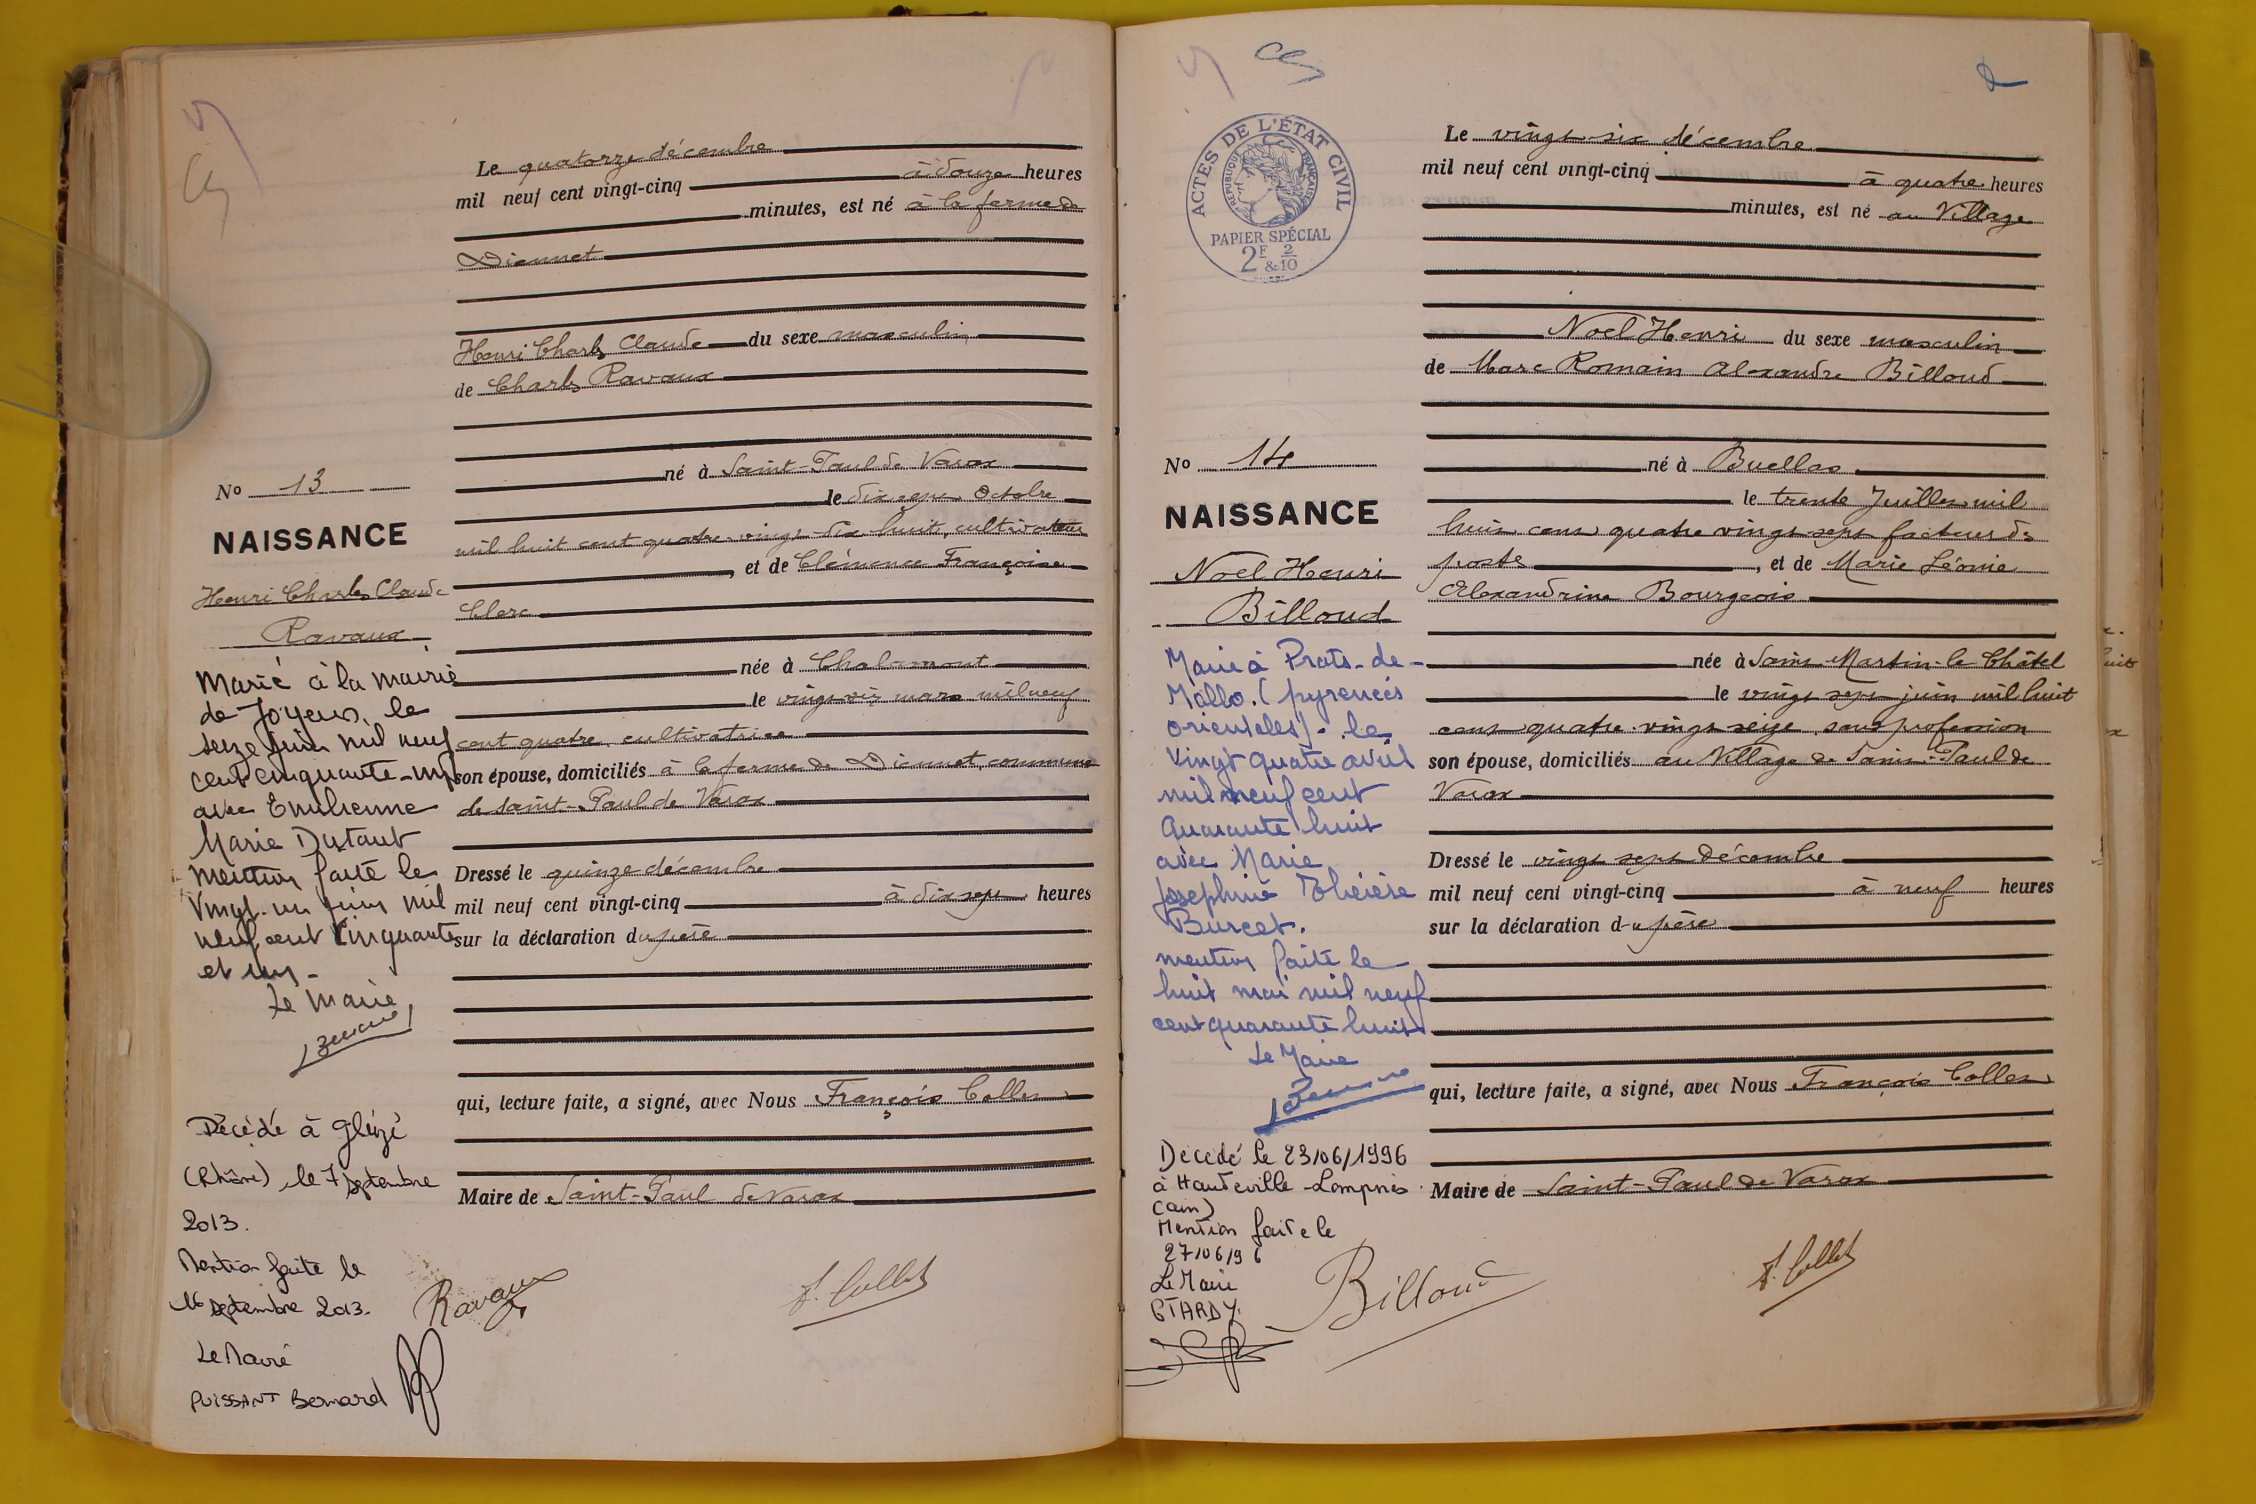 Le quatorze décembre
mil neuf cent vingt-cinq à douze heures
minutes, est né à la ferme de
Diennet
Henri Charles Claude du sexe masculin
de Charles Ravaux
né à Saint-Paul de Varax
le dix sept Octobre
mil huit cent quatre-vingt-dix-huit, cultivateur
, et de Clémence Françoise
Clerc
née à Chalamont
le vingt six mars mil neuf
cent quatre, cultivatrice
son épouse, domiciliés à la ferme de Diennet, commune
de Saint-Paul de Varax
Dressé le quinze décembre
mil neuf cent vingt-cinq à dix sept heures
sur la déclaration du père
qui, lecture faite, a signé, avec Nous François Collet
Maire de Saint-Paul de Varax
Ravaux
F. Collet
No 13
NAISSANCE
Henri Charles Claude
Ravaux
Marié à la mairie
de Joyeux, le
seize juin mil neuf
cent cinquante-un
avec Emilienne
Marie Dutaut
mention faite le
Vingt-un juin mil
neuf cent cinquante
et un-
Le Maire
Décédé à Gleizé
(Rhône), le 7 septembre
2013.
Mention faite le
16 septembre 2013.
Le Maire
PUISSANT Bernard
ACTES DE L'ÉTAT CIVIL
RÉPUBLIQUE FRANÇAISE
PAPIER SPÉCIAL
2F & 2/10
Le vingt-six décembre
mil neuf cent vingt-cinq à quatre heures
minutes, est né au Village
Noël Henri du sexe masculin
de Marc Romain Alexandre Billoud
né à Buellas
le trente Juillet mil
huit cent quatre vingt sept facteur de
poste, et de Marie Léonie
Alexandrine Bourgeois
née à Saint-Martin-le Châtel
le vingt sept juin mil huit
cent quatre-vingt seize, sans profession
son épouse, domiciliés au Village de Saint-Paul de
Varax
Dressé le vingt sept décembre
mil neuf cent vingt-cinq à neuf heures
sur la déclaration du père
qui, lecture faite, a signé, avec Nous François Collet
Maire de Saint-Paul de Varax
Billoud
F. Collet
No 14
NAISSANCE
Noël Henri
Billoud
Marié à Prats-de-
Mollo. (pyrenées
orientales)- le
Vingt quatre avril
mil neuf cent
quarante huit
avec Marie
Josephine Thérèse
Burcet.
mention faite le
huit mai mil neuf
cent quarante huit
Le Maire
Decedé le 23/06/1996
à Hauteville-Lompnis
(ain)
Mention faite le
27/06/96
Le Maire
G TARDY.